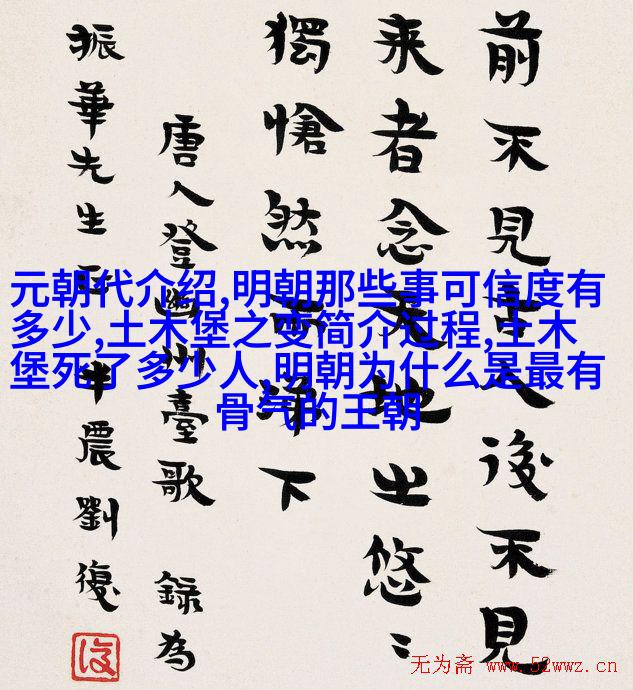 前不見古人後不見
来者念天地之悠〻
獨愴然而涕下
唐人登幽州臺歌 錄為
振華先生正 半農劉復
元朝代介绍,明朝那些事可信度有
多少,土木堡之变简介过程,土木
堡死了多少人,明朝为什么是最有
骨气的王朝
无为斋 www.52wwz.cn